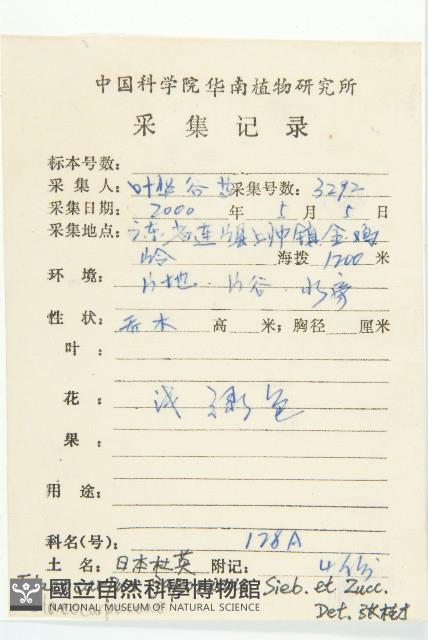 中国科学院华南植物研究所
采集记录
标本号数:
采集人:叶华谷 采集号数:3292
采集日期: 2000 年 5 月 5 日
采集地点:广东省连 县上帅镇金鸡
岭 海拨 1200 米
环境: 山地.山谷.水旁
性状: 乔木 高 米;胸径 厘米
叶:
花: 浅绿色
果:
用途:
科名(号): 128A
土名:日本杜英 附记: 4份
國立自然科學博物館 Sieb. et Zucc.
NATIONAL MUSEUM OF NATURAL SCIENCE Det. 张桂才